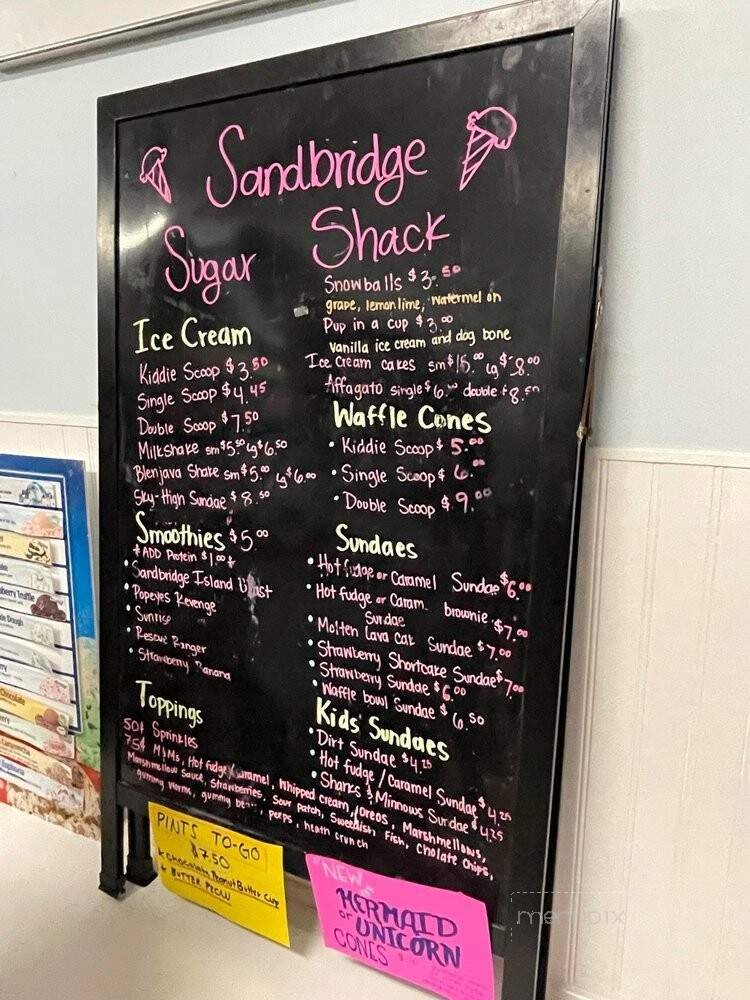 Sandbridge
Sugar Shack
Ice Cream
Kiddie Scoop $3.50
Single Scoop $4.45
Double Scoop $7.50
Milkshake sm $5.50 lg $6.50
Blenjava Shake sm $5.00 lg $6.00
Sky-High Sundae $8.50
Smoothies $5.00
*ADD Protein $1.00*
• Sandbridge Island Blast
• Popeyes Revenge
• Sunrise
• Rescue Ranger
• Strawberry Banana
Toppings
50¢ Sprinkles
75¢ M&Ms, Hot fudge/Caramel, Whipped cream, Oreos, Marshmellows,
Marshmellow Sauce, Strawberries, Sour patch, Sweedish Fish, Cholate Chips,
gummy worms, gummy peeps, heath crunch
Snowballs $3.50
grape, lemon lime, watermelon
Pup in a cup $3.00
vanilla ice cream and dog bone
Ice Cream cakes sm lg
Affagato single double
Waffle Cones
• Kiddie Scoop $5.00
• Single Scoop $6.00
• Double Scoop $9.00
Sundaes
• Hot fudge or Caramel Sundae $6.00
• Hot fudge or Caram. brownie $7.00
Sundae
• Molten Lava Cak Sundae $7.00
• Strawberry Shortcake Sundae $7.00
• Strawberry Sundae $6.00
• Waffle bowl Sundae $6.50
Kids Sundaes
• Dirt Sundae $4.25
• Hot fudge / Caramel Sundae $4.25
• Sharks & Minnows Sundae $4.25
PINTS TO-GO
$7.50
* Chocolate Peanut Butter Cup
* BUTTER PECAN
NEW
MERMAID
or UNICORN
CONES
menupix